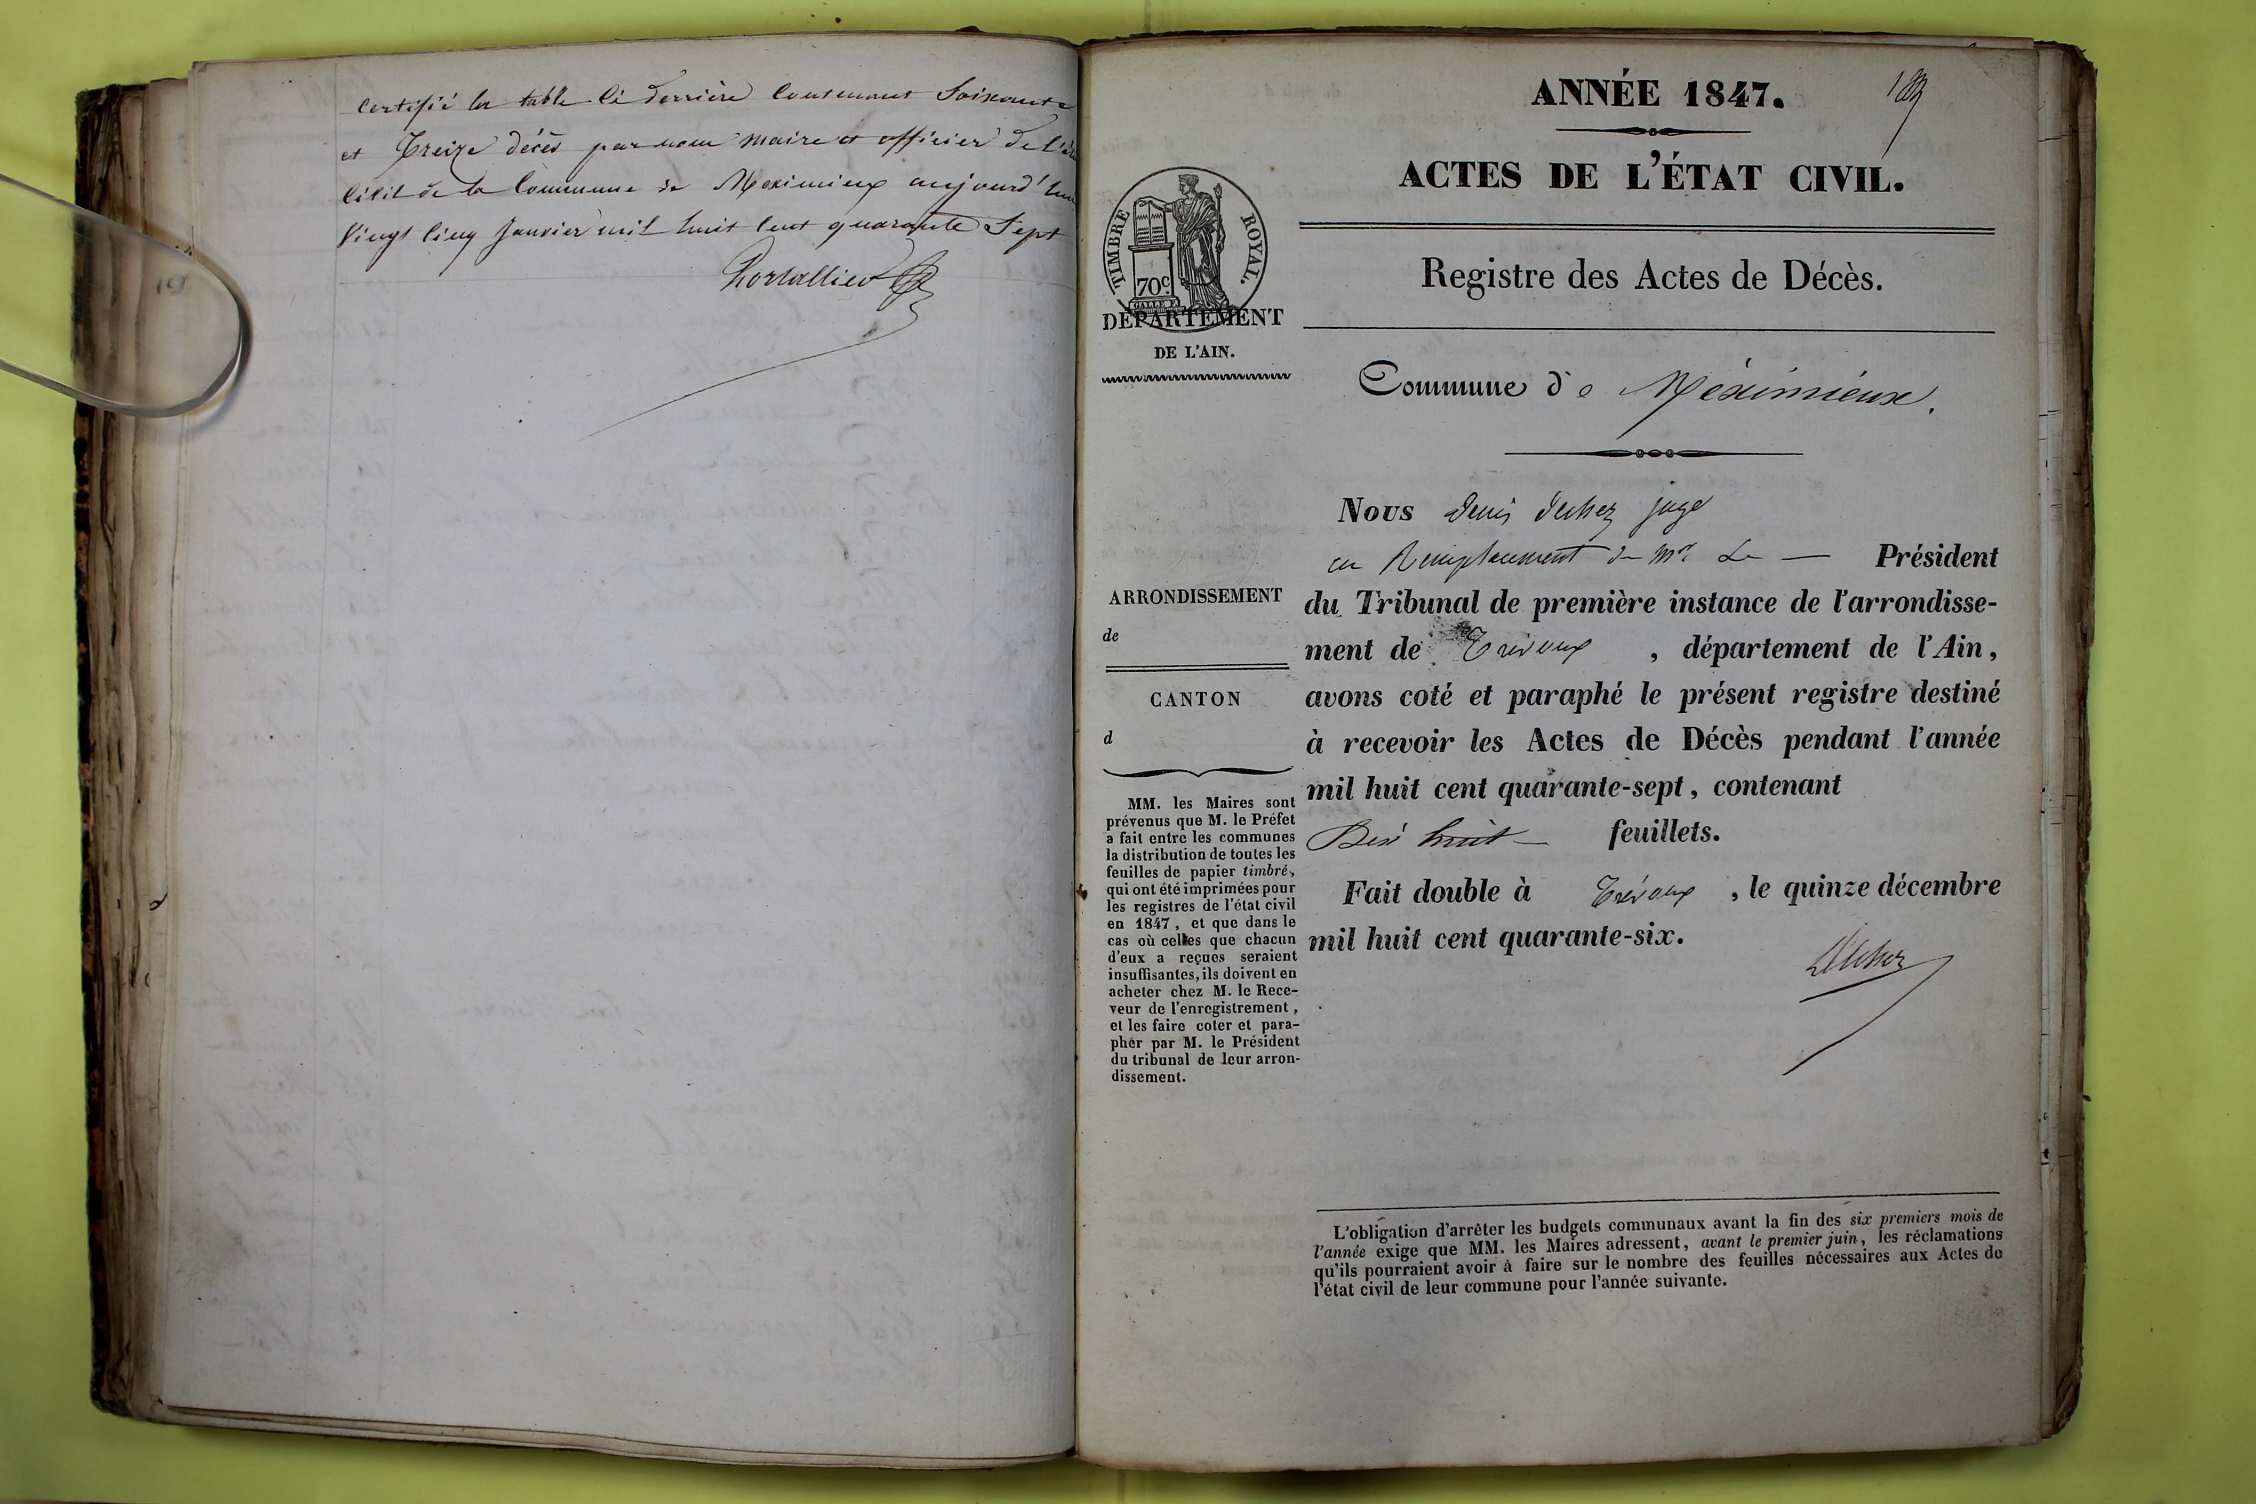 certifié la table ci derrière contenant Soixante
et Treize décès par nous maire et officier de l'état
civil de la Commune de Meximieux aujourd'hui
Vingt cinq Janvier mil huit cent quarante Sept
Portallier
ANNÉE 1847.
ACTES DE L'ÉTAT CIVIL.
Registre des Actes de Décès.
TIMBRE ROYAL.
70c.
DÉPARTEMENT
DE L'AIN.
Commune de Méximieux.
ARRONDISSEMENT
de
CANTON
d
MM. les Maires sont
prévenus que M. le Préfet
a fait entre les communes
la distribution de toutes les
feuilles de papier timbré,
qui ont été imprimées pour
les registres de l'état civil
en 1847, et que dans le
cas où celles que chacun
d'eux a reçues seraient
insuffisantes, ils doivent en
acheter chez M. le Rece-
veur de l'enregistrement,
et les faire coter et para-
pher par M. le Président
du tribunal de leur arron-
dissement.
Nous Denis juge
en Remplacement de Mr. Le — Président
du Tribunal de première instance de l'arrondisse-
ment de Trévoux, département de l'Ain,
avons coté et paraphé le présent registre destiné
à recevoir les Actes de Décès pendant l'année
mil huit cent quarante-sept, contenant
Dix huit — feuillets.
Fait double à Trévoux, le quinze décembre
mil huit cent quarante-six.
L'obligation d'arrêter les budgets communaux avant la fin des six premiers mois de
l'année exige que MM. les Maires adressent, avant le premier juin, les réclamations
qu'ils pourraient avoir à faire sur le nombre des feuilles nécessaires aux Actes de
l'état civil de leur commune pour l'année suivante.